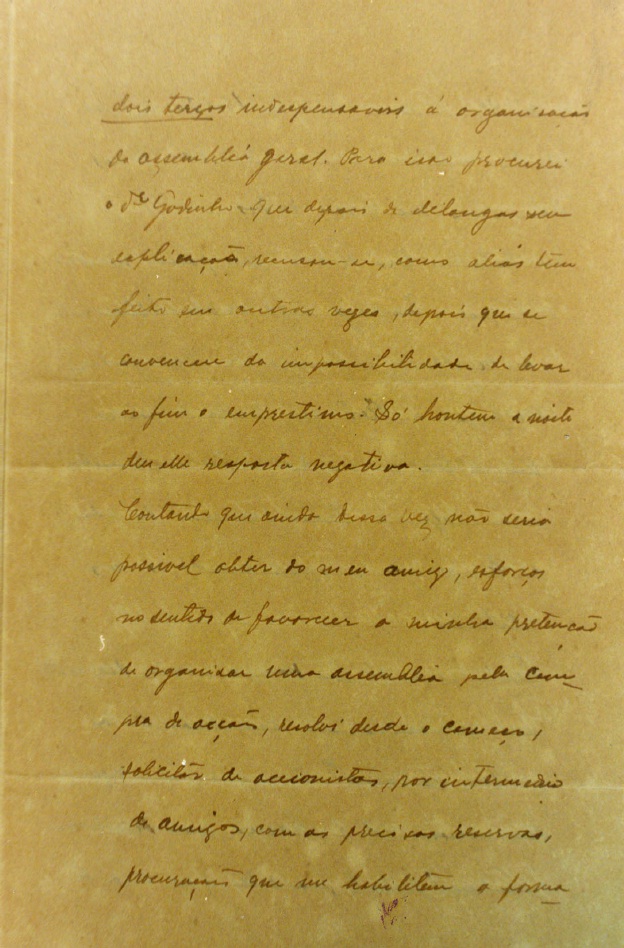 dois terços indespensaveis á organisação
da assembléa geral. Para isso procurei
o Dr. Godinho que depois de delongas sem
explicação, recusou-se, como aliás tem
feito em outras vezes, depois que se
convenceu da impossibilidade de levar
ao fim o emprestimo. Só hontem a noite
deu elle resposta negativa.
Contando que ainda dessa vez não seria
possivel obter do meu amigo, esforços
no sentido de favorecer a minha pretenção
de organisar uma assembléa pela com-
pra de acções, resolvi desde o começo,
solicitar de accionistas, por intermedio
de amigos, com as precisas reservas,
procurações que me habilitem a forma